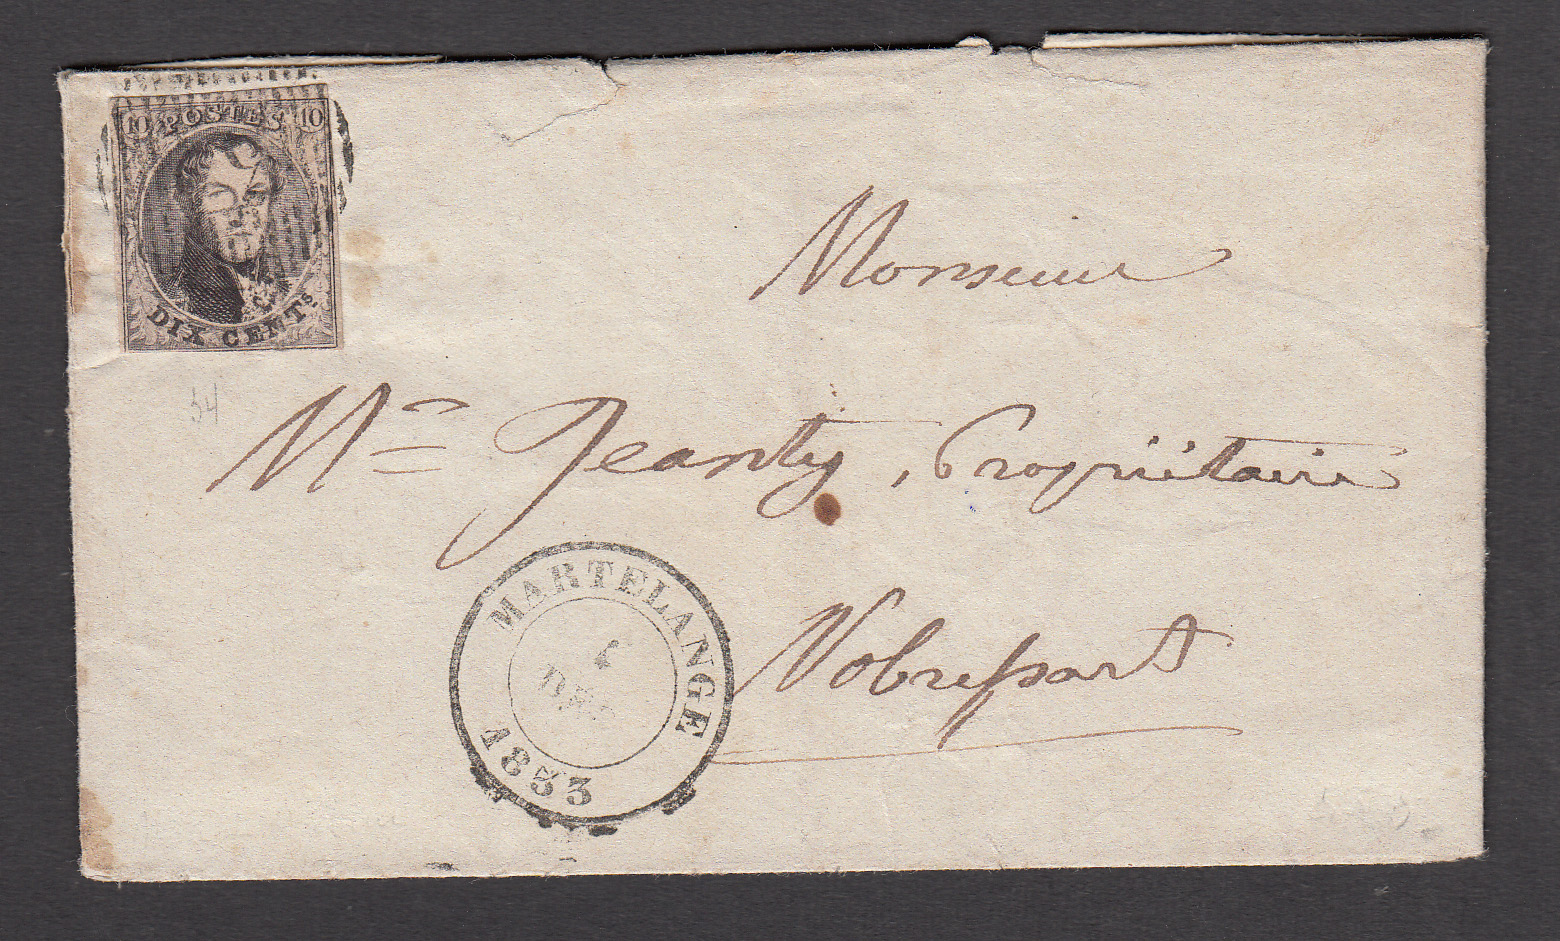 10 POSTES 10
DIX CENTS.
54
Monsieur
Mr Jeanty, Propriétaire
Nobressart
MARTELANGE
DEC
1853